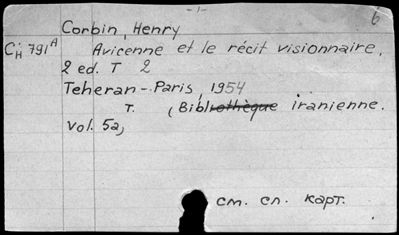 -1-
6
Corbin, Henry
CH 791A Avicenne et le récit visionnaire.
2 ed. T 2
Teheran - Paris, 1954
T. (Bibliothèque iranienne.
Vol. 5a)
см. сл. карт.